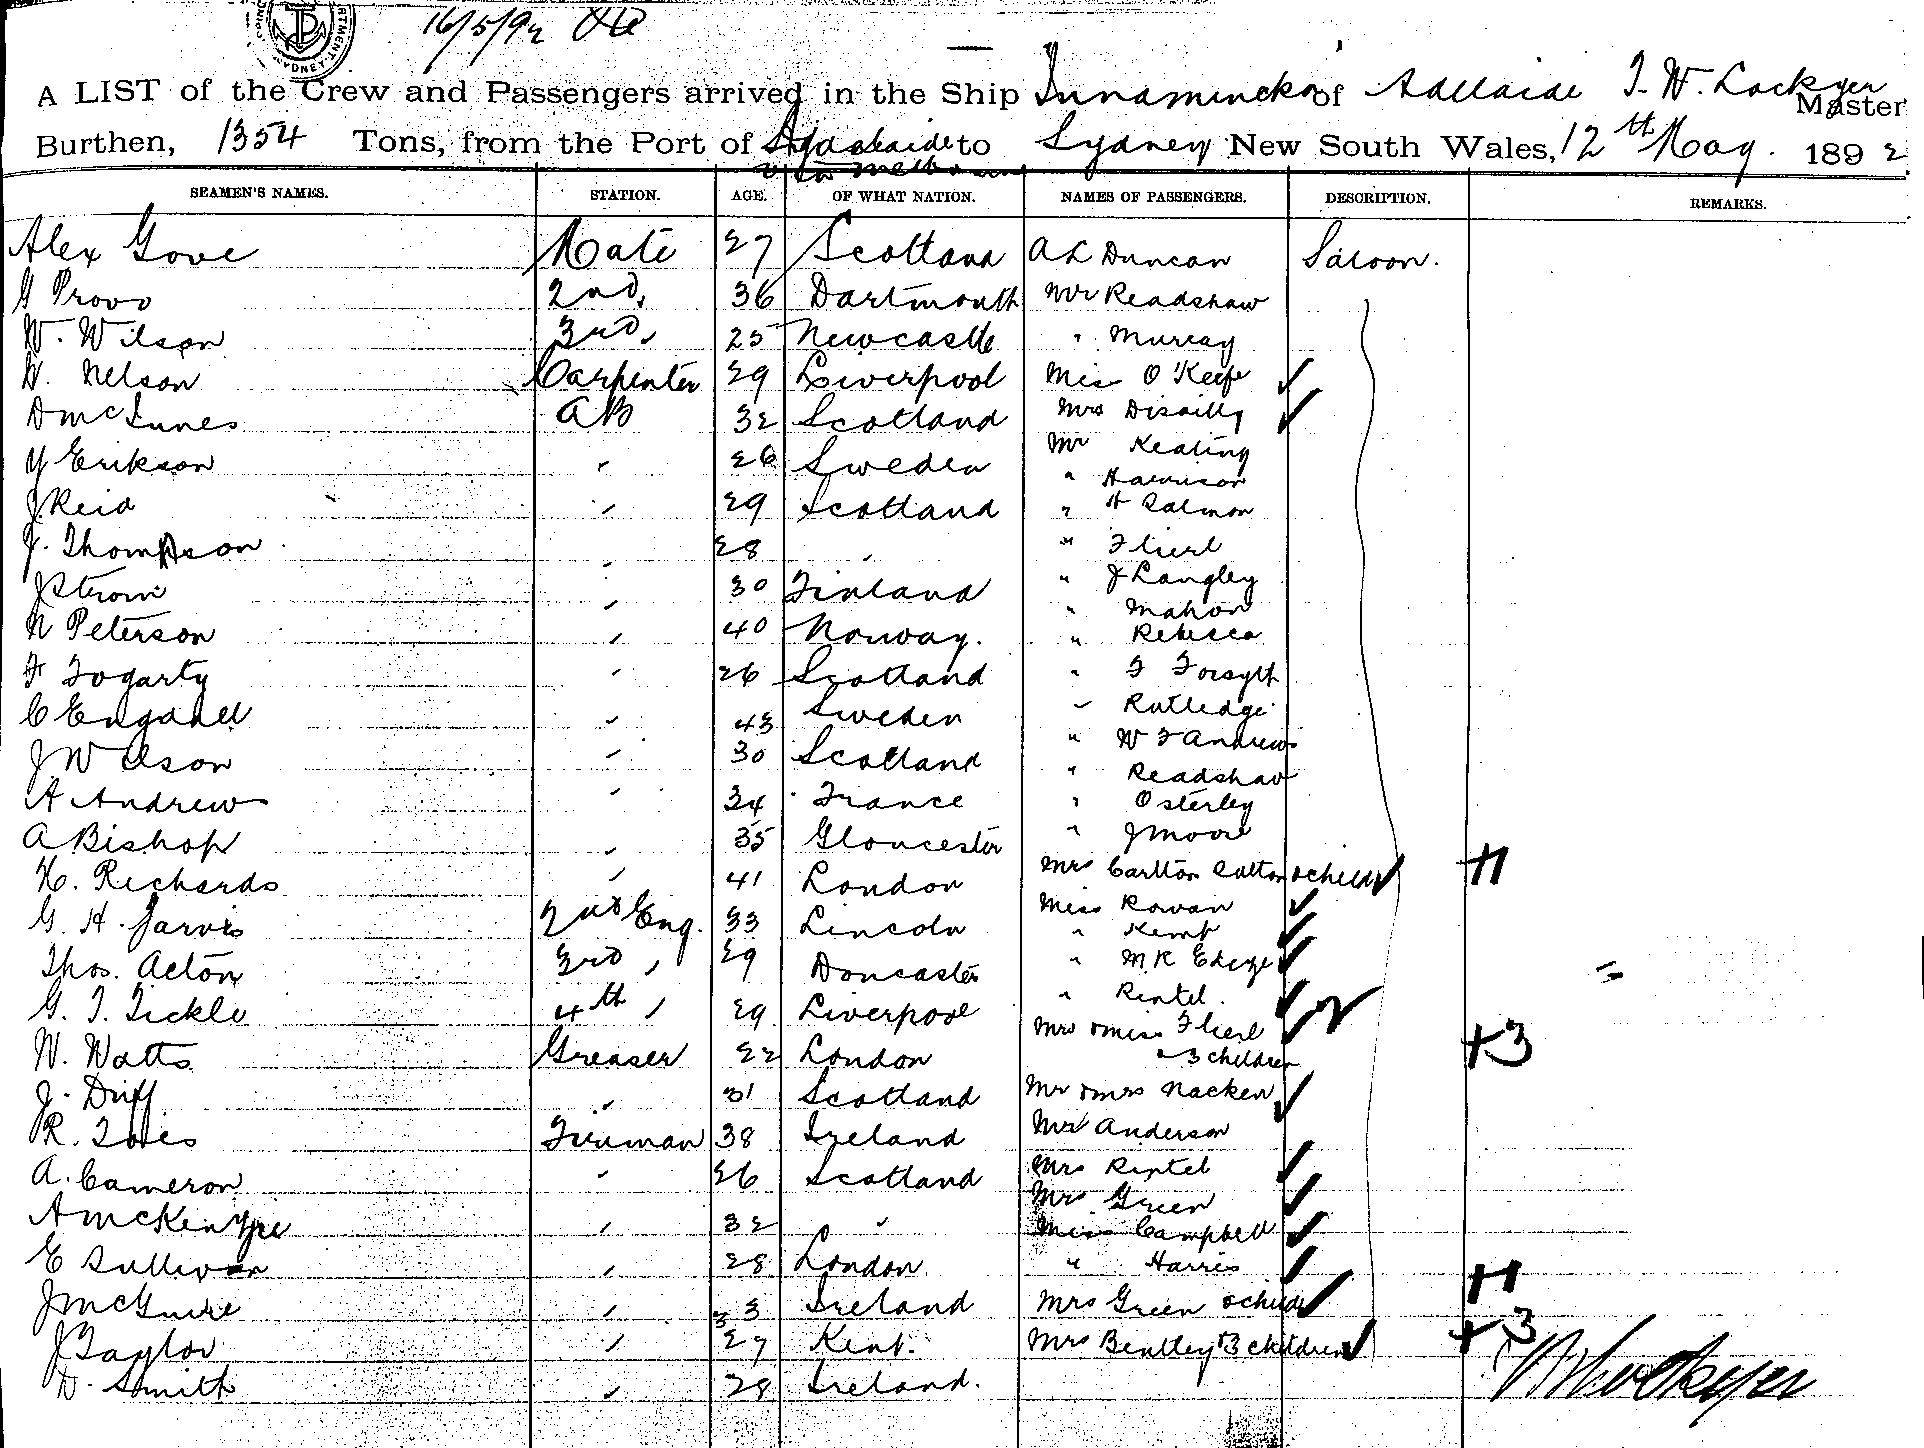 16/5/92
A LIST of the Crew and Passengers arrived in the Ship Innamincka of Adelaide T. W. Lockyer Master
Burthen, 1354 Tons, from the Port of Adelaide to Sydney New South Wales, 12th May. 1892
via Melbourne
SEAMEN'S NAMES. STATION. AGE. OF WHAT NATION. NAMES OF PASSENGERS. DESCRIPTION. REMARKS.
Alex Gove Mate 27 Scotland A L Duncan Saloon.
G Provo 2nd, 36 Dartmouth Mr Readshaw
W. Wilson 3rd, 25 Newcastle " Murray
N. Nelson Carpenter 29 Liverpool Miss O'Keefe ✓
D McInnes AB 32 Scotland Mrs Disailly ✓
Y Erikson " 26 Sweden Mr Keating
" Harrison
J Reid " 29 Scotland " H Salmon
J. Thompson " 28 " " Flierl
J Strom " 30 Finland " J Langley
" Mahon
N Peterson " 40 Norway. " Rebecca
F Fogarty " 26 Scotland " F Forsyth
C Engdahl " 43 Sweden " Rutledge
J Wilson " 30 Scotland " W F Andrews
" Readshaw
A Andrews " 34 France " Osterley
A Bishop " 35 Gloucester " J Moore
H. Richards " 41 London Mrs Carlton Sutton & child ✓ +1
G. H. Jarvis 2nd Eng. 33 Lincoln Miss Rowan ✓
" Kemp ✓
Thos. Acton 3rd " 29 Doncaster " M K ✓
G. T. Tickle 4th " 29 Liverpool " Rintel. ✓
Mrs & Miss Flierl ✓ 2
W. Watts Greaser 22 London & 3 children +3
J. Duff " 31 Scotland Mr & Mrs Nacken ✓
R. Fireman 38 Ireland Mr Anderson
A. Cameron " 26 Scotland Mrs Rintel ✓
Mrs Green ✓
A McKenzie " 32 " Miss Campbell ✓
E Sullivan " 28 London " Harris ✓
J McGuire " 33 Ireland Mrs Green & child ✓ +1
J Taylor " 27 Kent. Mrs Bentley & 3 children ✓ +3
D. Smith " 28 Ireland.
Lockyer